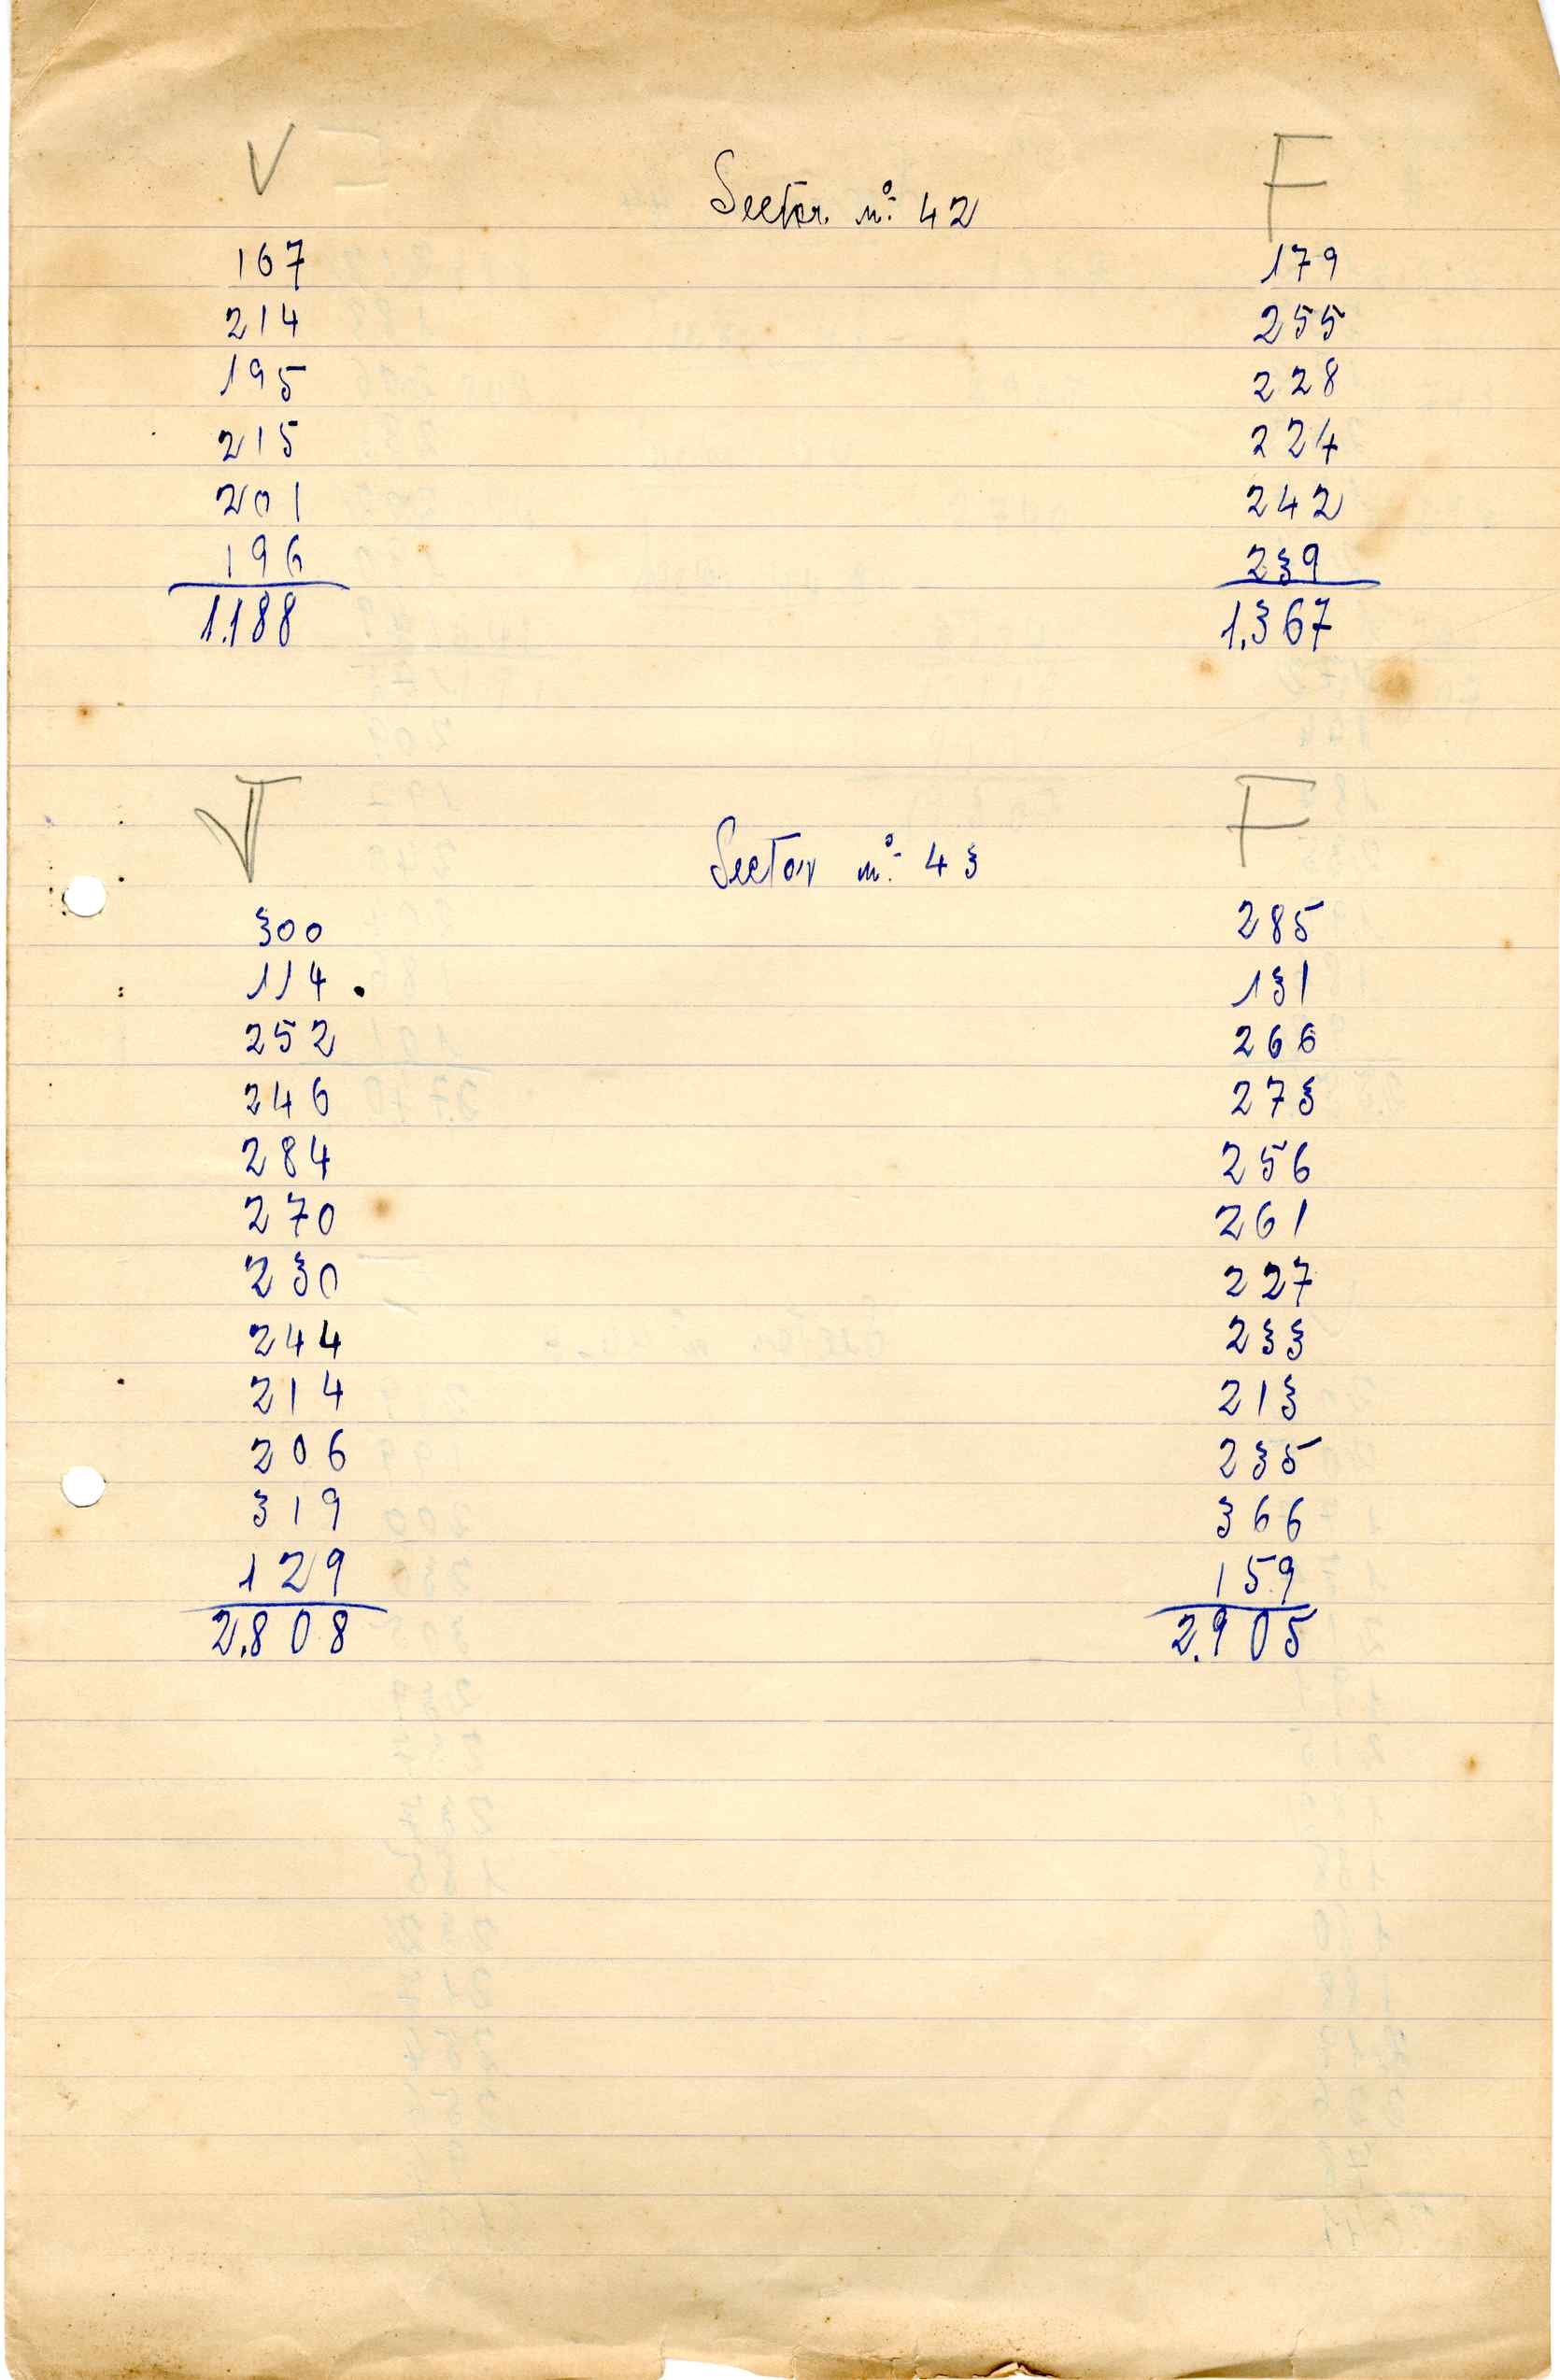 V F
Sector nº 42
167 179
214 255
195 228
215 224
201 242
196 239
1.188 1.367
V F
Sector nº 43
300 285
114 131
252 266
246 273
284 256
270 261
230 227
244 233
214 213
206 235
319 366
129 159
2.808 2.905